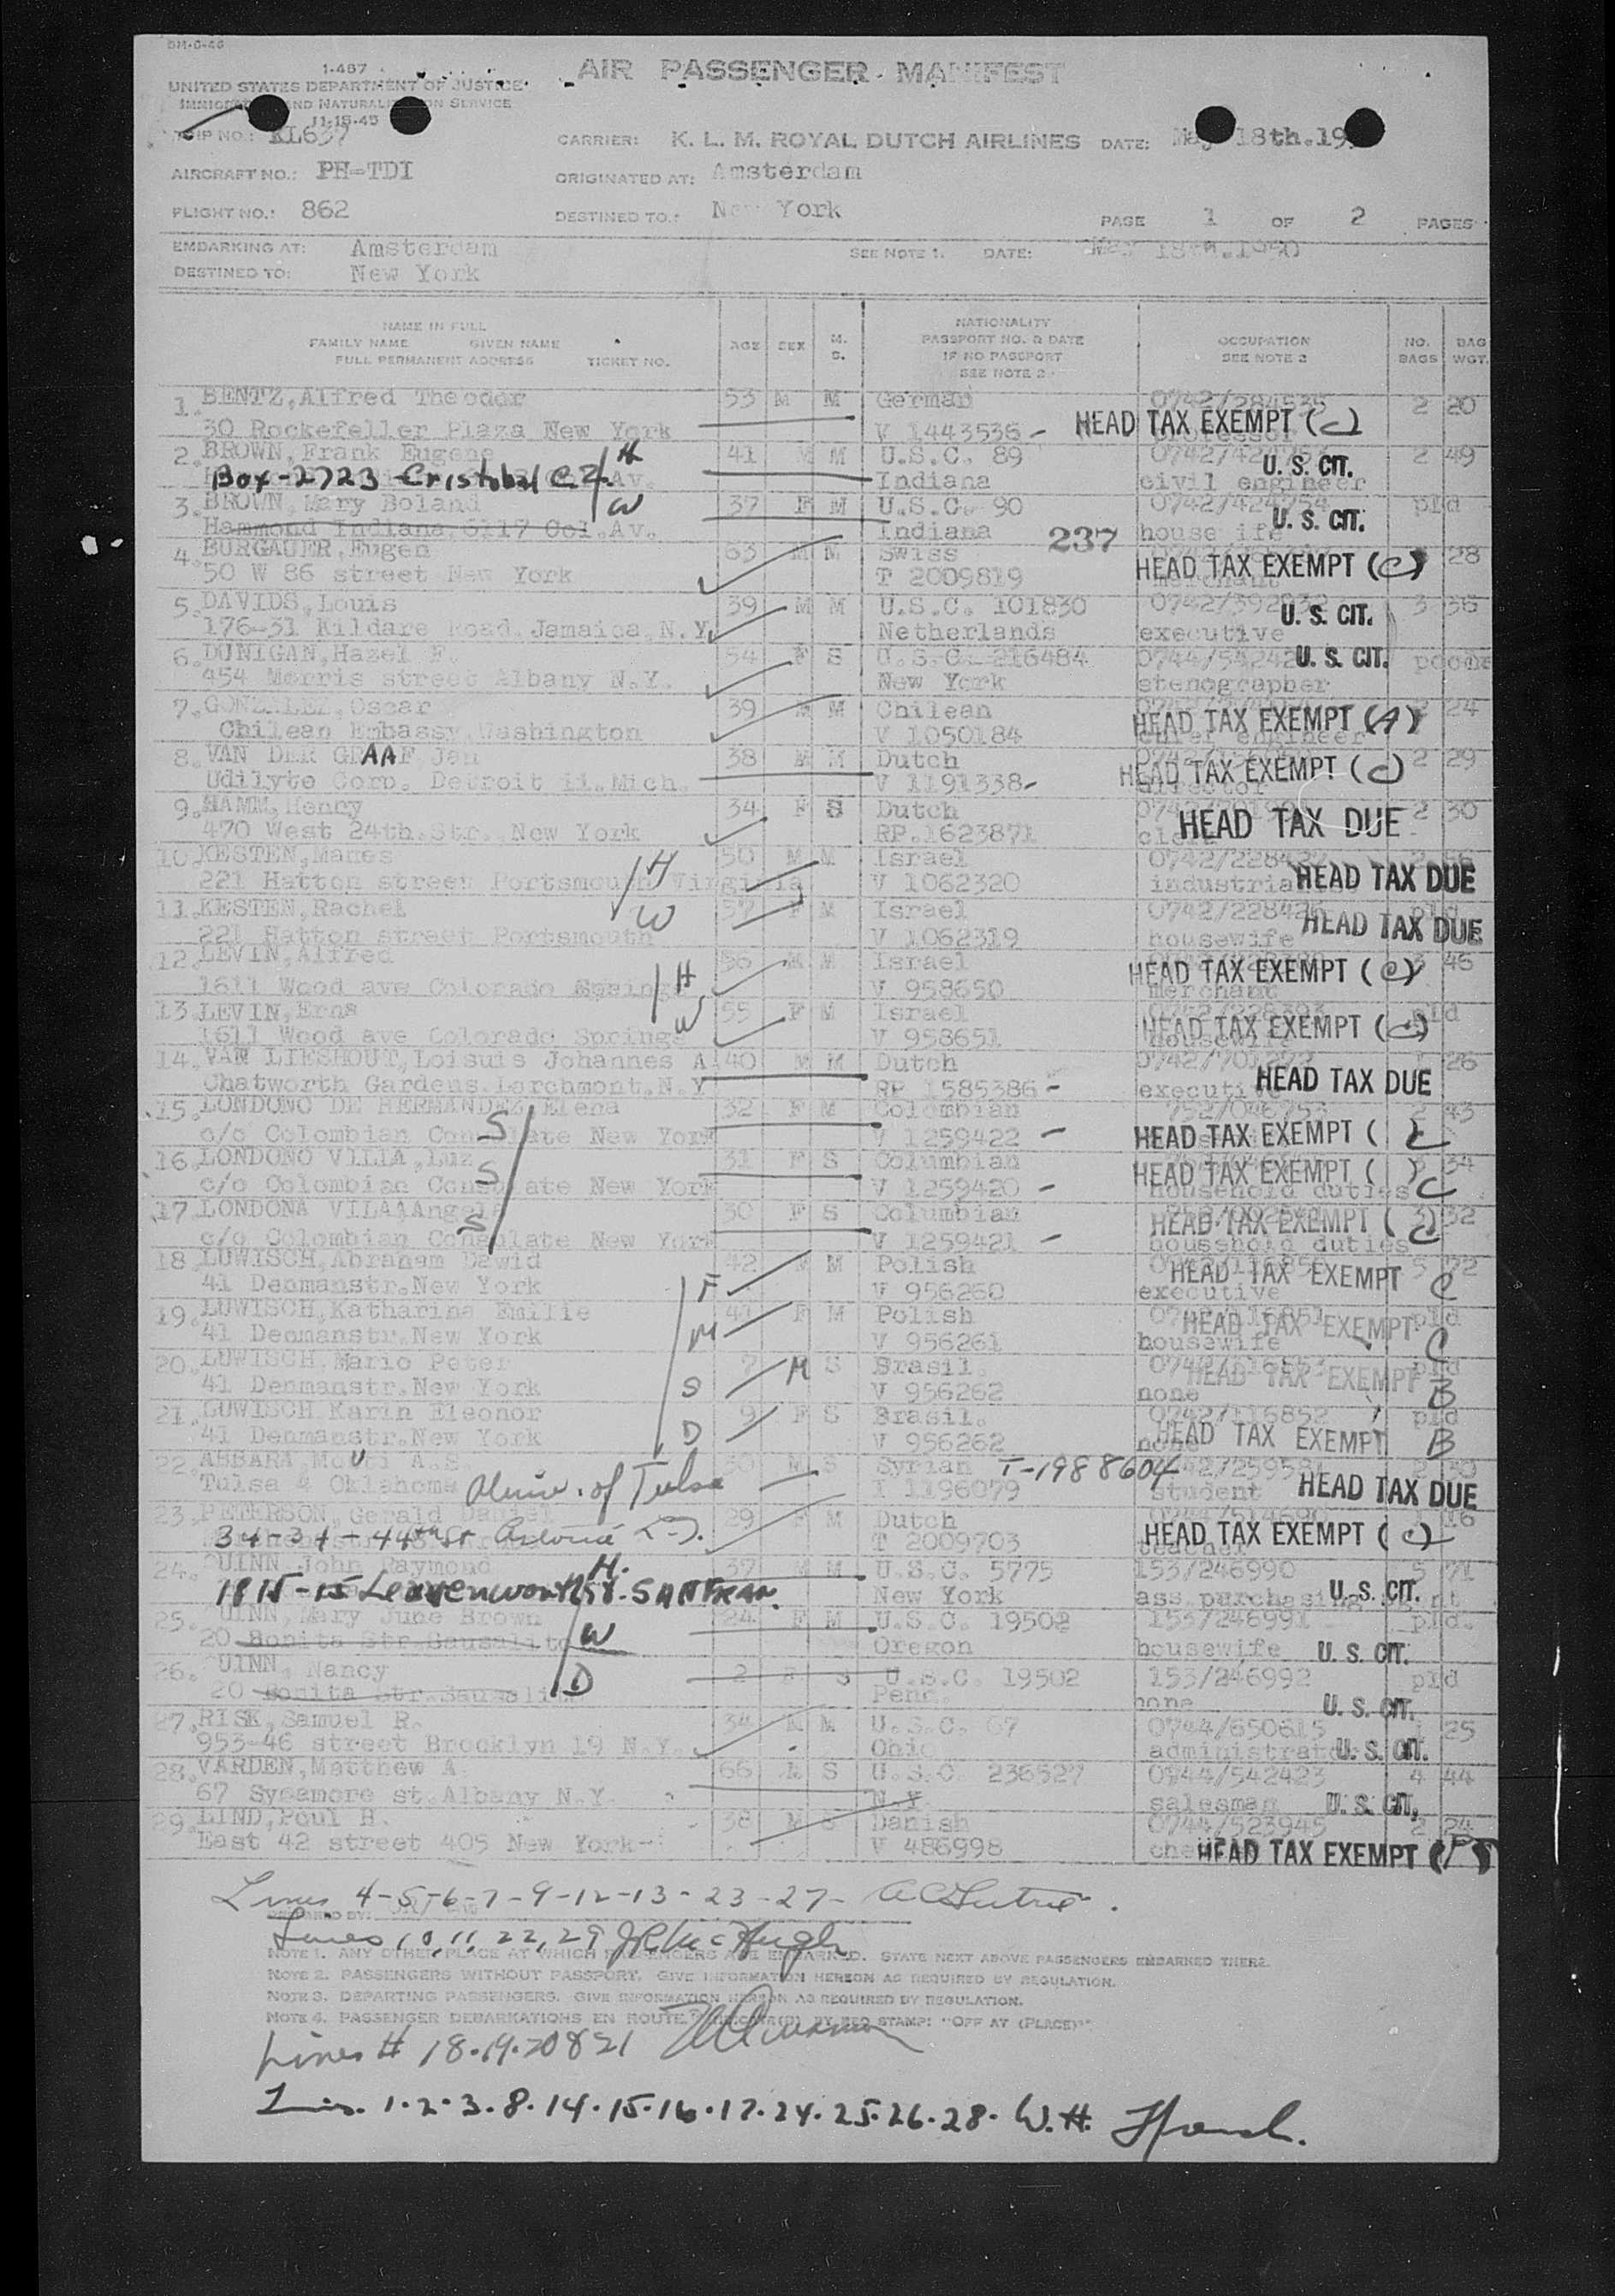 1-467
UNITED STATES DEPARTMENT OF JUSTICE
AIR PASSENGER MANIFEST
11-18-45
TRIP NO.: KL637
CARRIER: K. L. M. ROYAL DUTCH AIRLINES DATE: May 18th.19
AIRCRAFT NO.: PH-TDI
ORIGINATED AT: Amsterdam
FLIGHT NO.: 862
DESTINED TO.: New York
PAGE 1 OF 2 PAGES
EMBARKING AT: Amsterdam
SEE NOTE 1. DATE: May 18th.1950
DESTINED TO: New York
NAME IN FULL
FAMILY NAME GIVEN NAME
FULL PERMANENT ADDRESS TICKET NO.
AGE SEX M. S.
NATIONALITY
PASSPORT NO. & DATE
IF NO PASSPORT
SEE NOTE 2
OCCUPATION
SEE NOTE 2
NO. BAGS
BAG WGT.
1. BENTZ, Alfred Theodor 53 M M German 2 20
30 Rockefeller Plaza New York V 1443536 - HEAD TAX EXEMPT (C)
2. BROWN, Frank Eugene H 41 M M U.S.C. 89 U. S. CIT. 2 49
Box-2723 Cristobal C.Z. Av. Indiana civil engineer
3. BROWN, Mary Boland W 37 F M U.S.C. 90 0742/424754 U. S. CIT. pld
Hammond Indiana, 6117 Col. Av. Indiana 237
4. BURGAUER, Eugen 63 M M Swiss HEAD TAX EXEMPT (C) 28
50 W 86 street New York T 2009819
5. DAVIDS, Louis 39 M M U.S.C. 101830 U. S. CIT. 3 36
176-31 Kildare Road. Jamaica, N.Y. Netherlands executive
6. DUNIGAN, Hazel F. 54 F S U.S.C. 216484 U. S. CIT.
454 Morris street Albany N.Y. New York stenographer
7. GONZALEZ, Oscar 39 M M Chilean 24
Chilean Embassy, Washington V 1050184 HEAD TAX EXEMPT (A)
8. VAN DER GRAAF, Jan 38 M M Dutch 2 29
Udilyte Corp. Detroit 11. Mich. V 1191338- HEAD TAX EXEMPT (C)
9. HAMM, Henry 34 F S Dutch 2 30
470 West 24th. Str. New York RP.1623871 HEAD TAX DUE
10. KESTEN, Manes H 50 M M Israel
221 Hatton street Portsmouth Virginia V 1062320 HEAD TAX DUE
11. KESTEN, Rachel W 57 F M Israel 0742/228426 pld
221 Hatton street Portsmouth V 1062319 housewife HEAD TAX DUE
12. LEVIN, Alfred H 56 M M Israel 45
1611 Wood ave Colorado Springs V 958650 HEAD TAX EXEMPT (C) merchant
13. LEVIN, Erna W 55 F M Israel pld
1611 Wood ave Colorado Springs V 958651 HEAD TAX EXEMPT (C) housewife
14. VAN LIESHOUT, Loisuis Johannes A 40 M M Dutch 26
Chatworth Gardens. Larchmont. N.Y RP 1585386 - HEAD TAX DUE
15. LONDONO DE HERNANDEZ, Elena S 32 F M Colombian 2 43
c/o Colombian Consulate New York V 1259422 - HEAD TAX EXEMPT ( ) C
16. LONDONO VILLA, Luz S 31 F S Columbian 34
c/o Colombian Consulate New York V 1259420 - HEAD TAX EXEMPT ( ) C household duties
17. LONDONA VILA, Angela S 30 F S Columbian 32
c/o Colombian Consulate New York V 1259421 - HEAD TAX EXEMPT ( ) C household duties
18. LUWISCH, Abraham Dawid F 42 M M Polish 5 72
41 Denmanstr. New York V 956260 executive HEAD TAX EXEMPT C
19. LUWISCH, Katharina Emilie M 41 F M Polish 0742/116851 pld
41 Denmanstr. New York V 956261 housewife HEAD TAX EXEMPT C
20. LUWISCH, Mario Peter S 7 M S Brasil. pld
41 Denmanstr. New York V 956262 none HEAD TAX EXEMPT B
21. LUWISCH Karin Eleonor D 9 F S Brasil. 0742/116852 pld
41 Denmanstr. New York V 956262 none HEAD TAX EXEMPT B
22. 30 M S Syrian T-1988604
Tulsa 4 Oklahoma Univ. of Tulsa I 1196079 student HEAD TAX DUE
23. PETERSON, Gerald Daniel 29 F M Dutch 16
34-34-44th St Astoria L.I. T 2009703 HEAD TAX EXEMPT (C)
24. QUINN John Raymond H. 37 M M U.S.C. 5775 153/246990 5 71
1815-15 Leavenworth St. SAN FRAN. New York U. S. CIT.
25. QUINN, Mary June Brown W 24 F M U.S.C. 19502 153/246991 pld.
20 Bonita Str. Sausalito Oregon housewife U. S. CIT.
26. QUINN, Nancy D 2 F S U.S.C. 19502 153/246992 pld
20 Bonita Str. Sausalito Penn. none U. S. CIT.
27. RISK, Samuel R. 34 M M U.S.C. 67 0744/650615 1 25
953-46 street Brooklyn 19 N.Y. Ohio administrator U. S. CIT.
28. VARDEN, Matthew A. 66 M S U.S.C. 236527 0744/542423 4 44
67 Sycamore st. Albany N.Y. N.Y. salesman U. S. CIT.
29. LIND, Poul H. 38 M S Danish 0744/523945 2 24
East 42 street 405 New York- V 486998 HEAD TAX EXEMPT
Lines 4-5-6-7-9-12-13-23-27-
Lines 10, 11, 22, 29 McHugh
NOTE 1. ANY OTHER PLACE AT WHICH PASSENGERS ARE EMBARKED. STATE NEXT ABOVE PASSENGERS EMBARKED THERE.
NOTE 2. PASSENGERS WITHOUT PASSPORT. GIVE INFORMATION HEREON AS REQUIRED BY REGULATION.
NOTE 3. DEPARTING PASSENGERS. GIVE INFORMATION HEREON AS REQUIRED BY REGULATION.
NOTE 4. PASSENGER DEBARKATIONS EN ROUTE. BY RED STAMP: "OFF AT (PLACE)"
Lines # 18.19.20 & 21
Lin. 1.2.3.8.14.15.16.17.24.25.26.28. W.H.